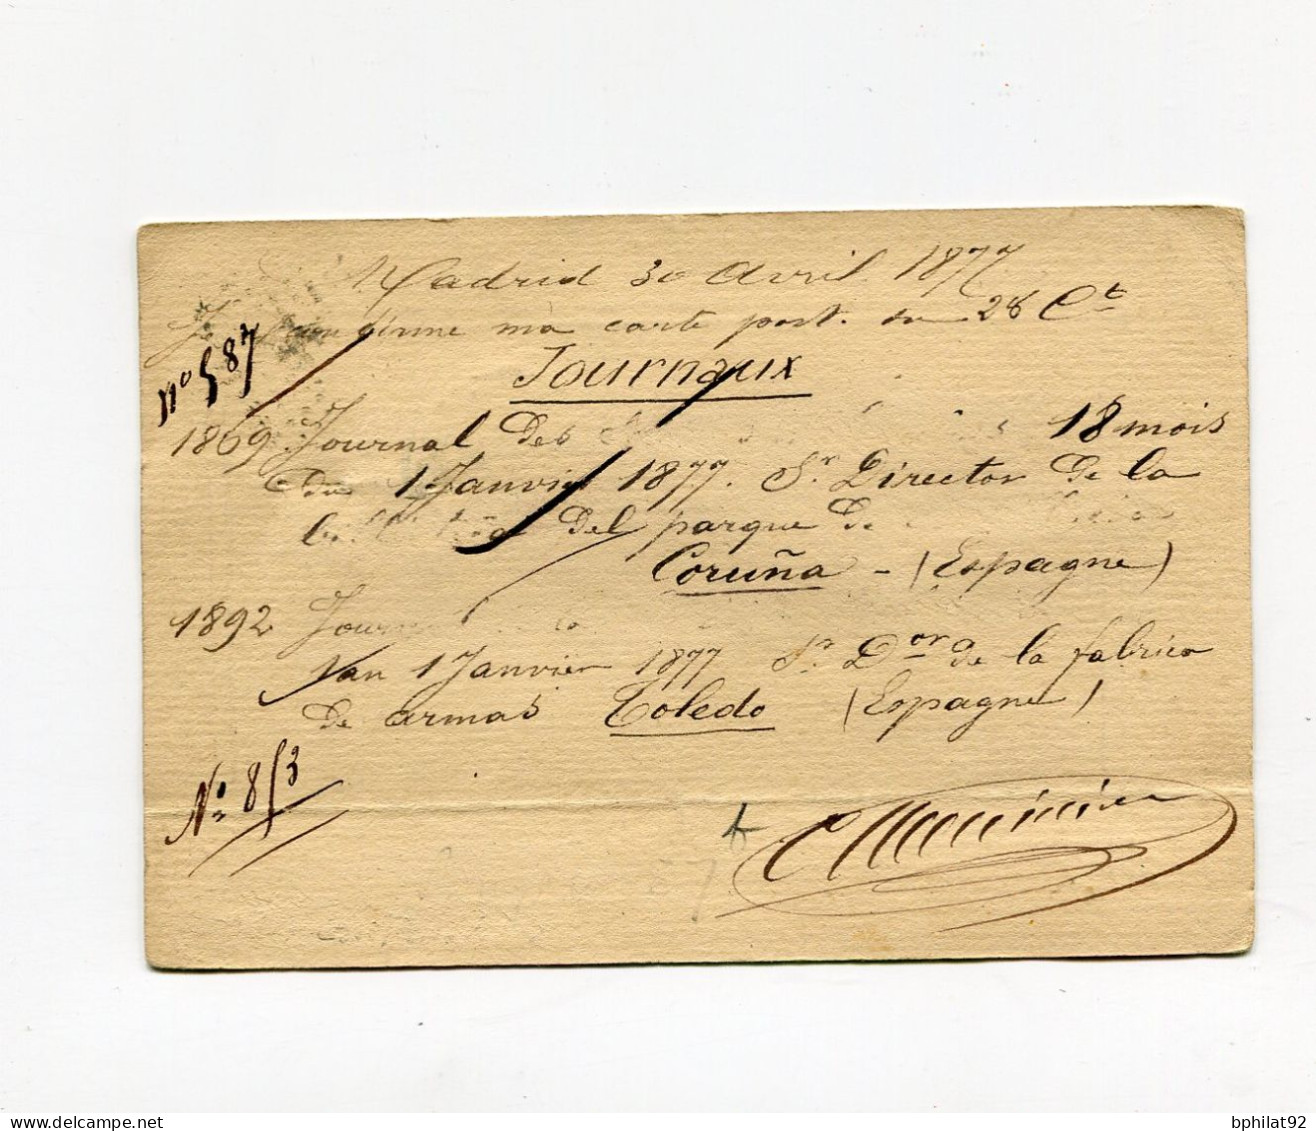 Madrid 30 Avril 1877
ma carte post. du 28 Ct
no 587
Journaux
1869 Journal Des 18 mois
du 1 Janvier 1877. Sr Director de la
Del parque De
Coruña - (Espagne)
1892
1 an 1 Janvier 1877 Sr Dor de la fabrica
de armas Toledo (Espagne)
No 853
bphilat92